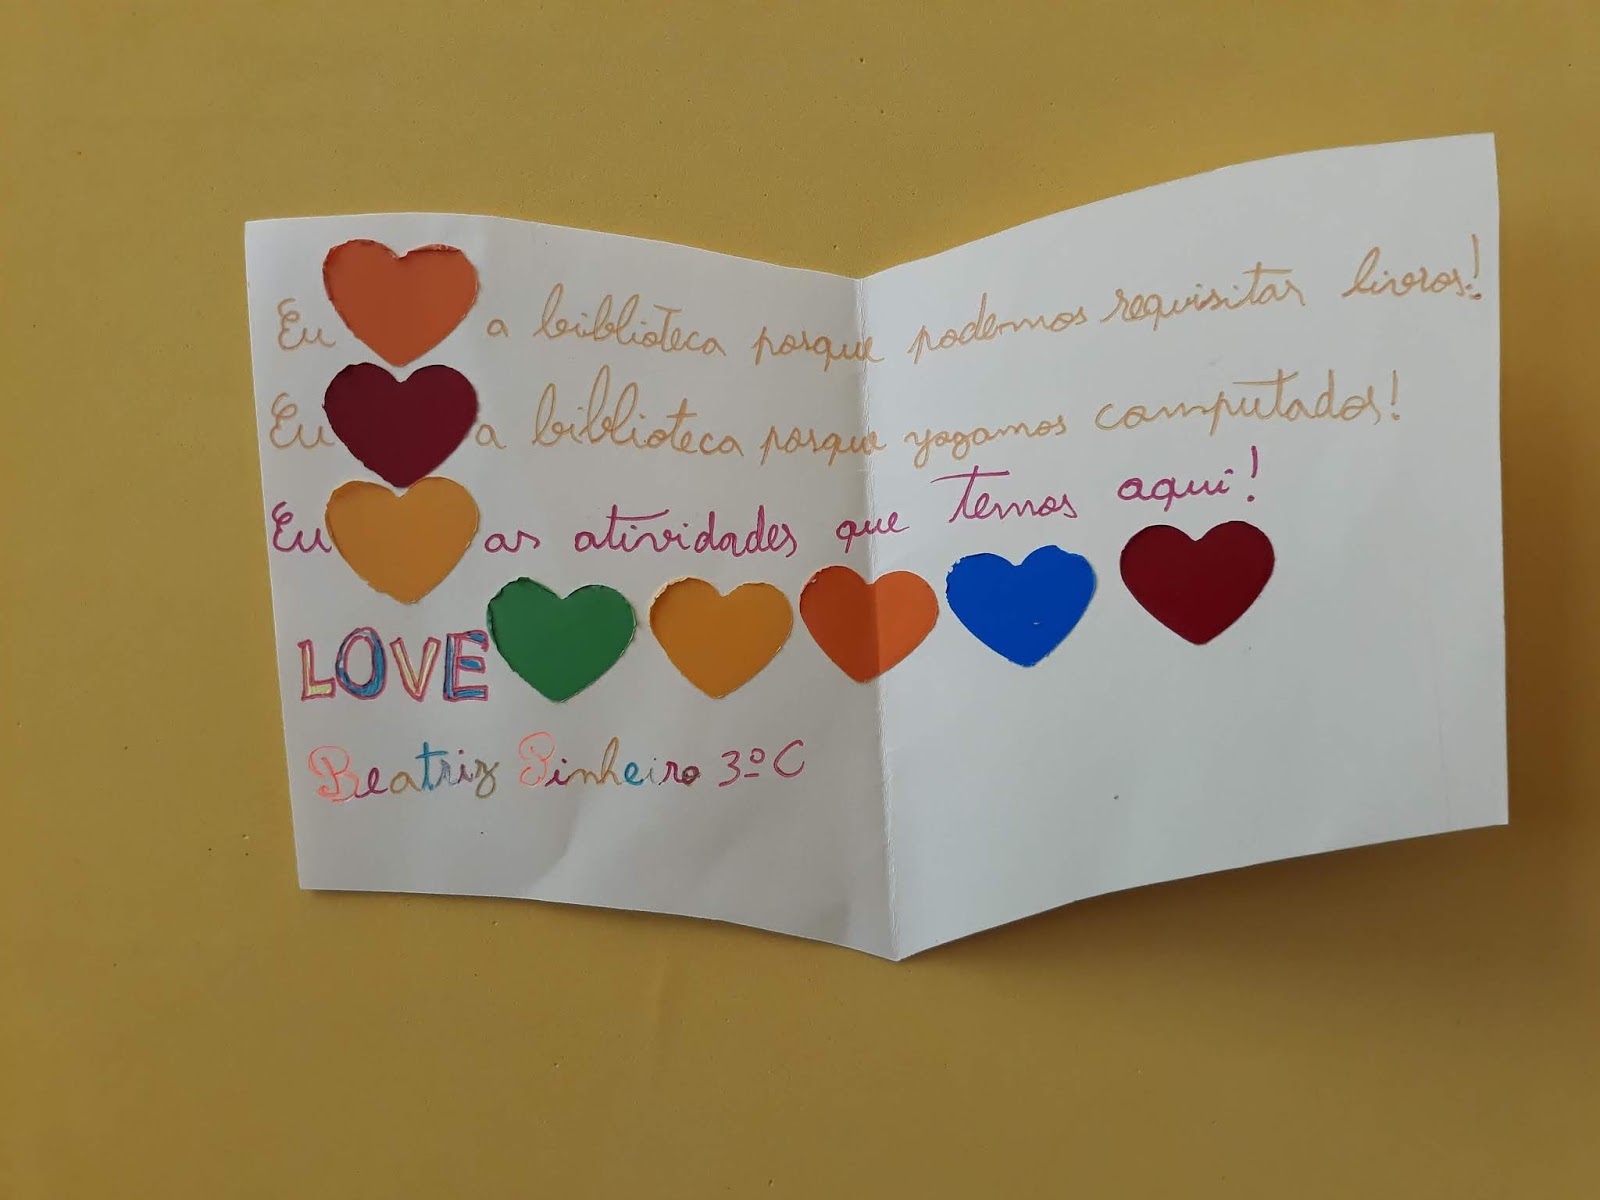 Eu a biblioteca porque podemos requisitar livros!
Eu a biblioteca porque yogamos computador!
Eu as atividades que temos aqui!
LOVE
Beatriz Pinheiro 3º C